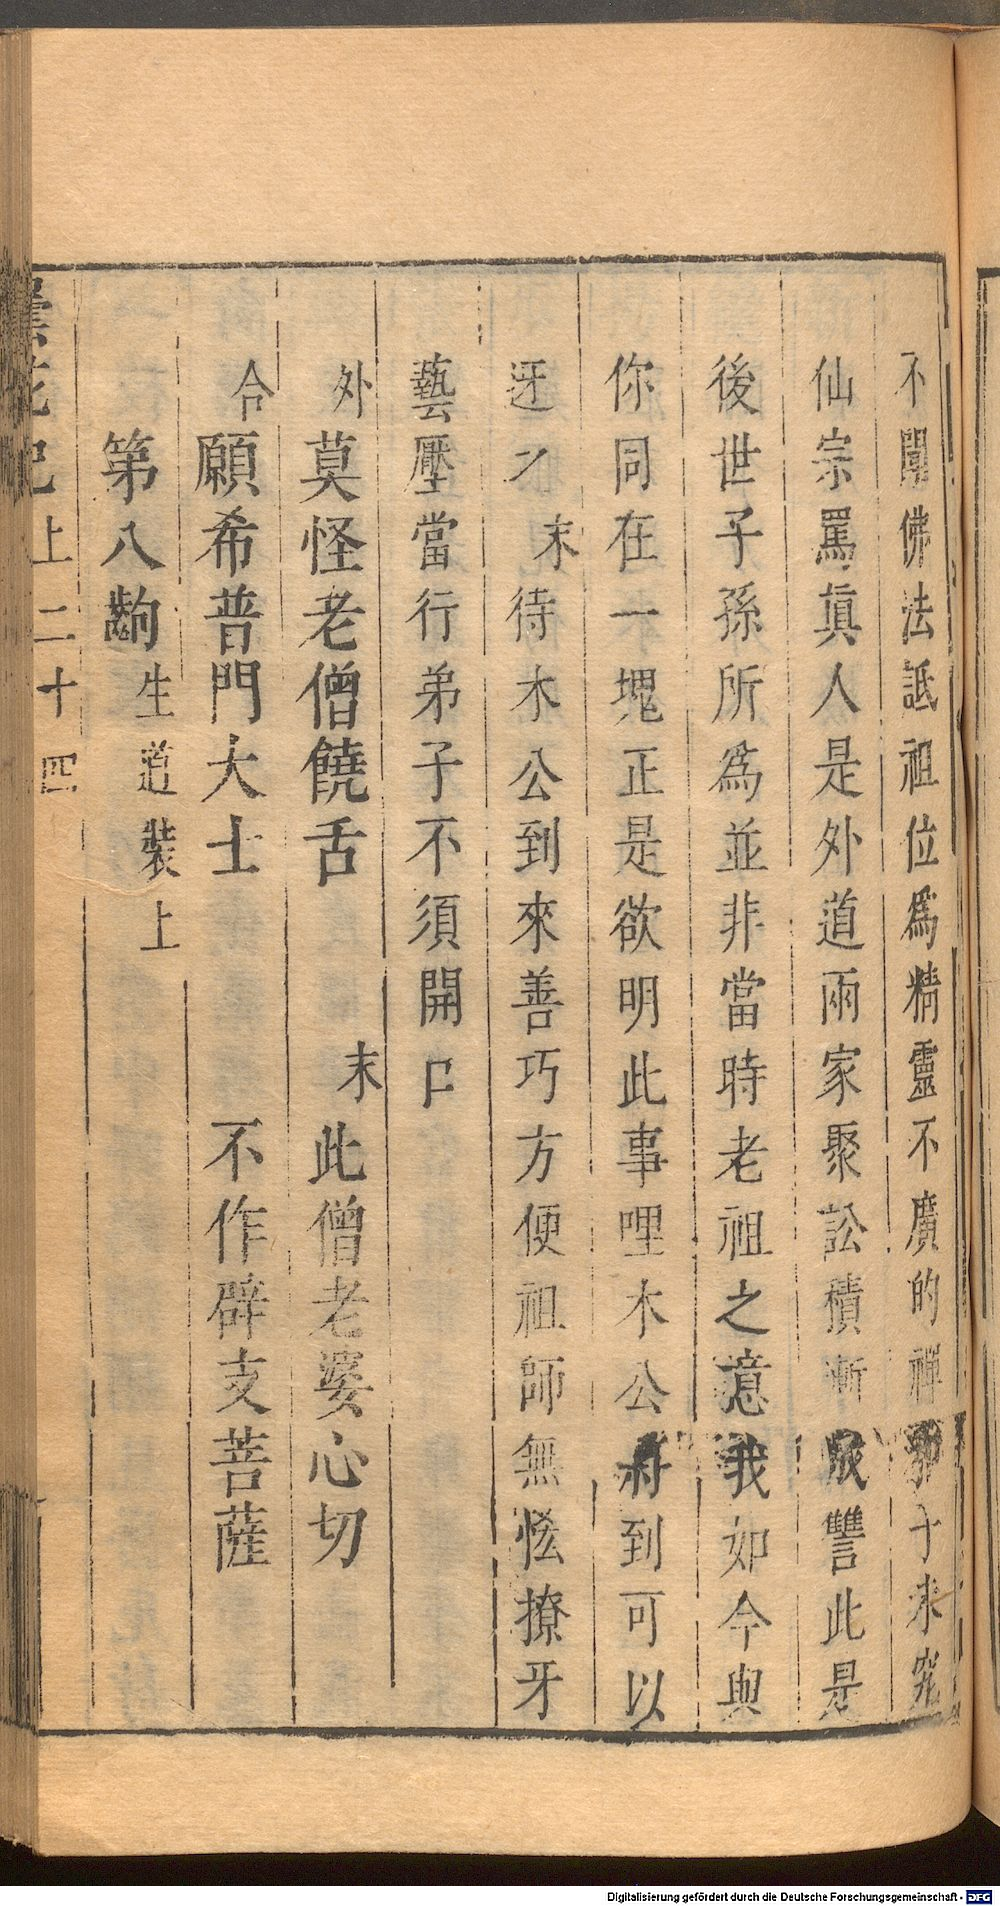 不聞佛法詆祖位爲精靈不廣的禪子未究
仙宗罵眞人是外道兩家聚訟積漸成讐此是
後世子孫所爲並非當時老祖之意我如今與
你同在一塊正是欲明此事哩木公將到可以
迓了末待木公到來善巧方便祖師無恡撩牙
藝壓當行弟子不須開口
外莫怪老僧饒舌 末此僧老婆心切
合願希普門大士 不作辟支菩薩
第八齣生道裝上
曇花記上二十四
Digitalisierung gefördert durch die Deutsche Forschungsgemeinschaft - DFG